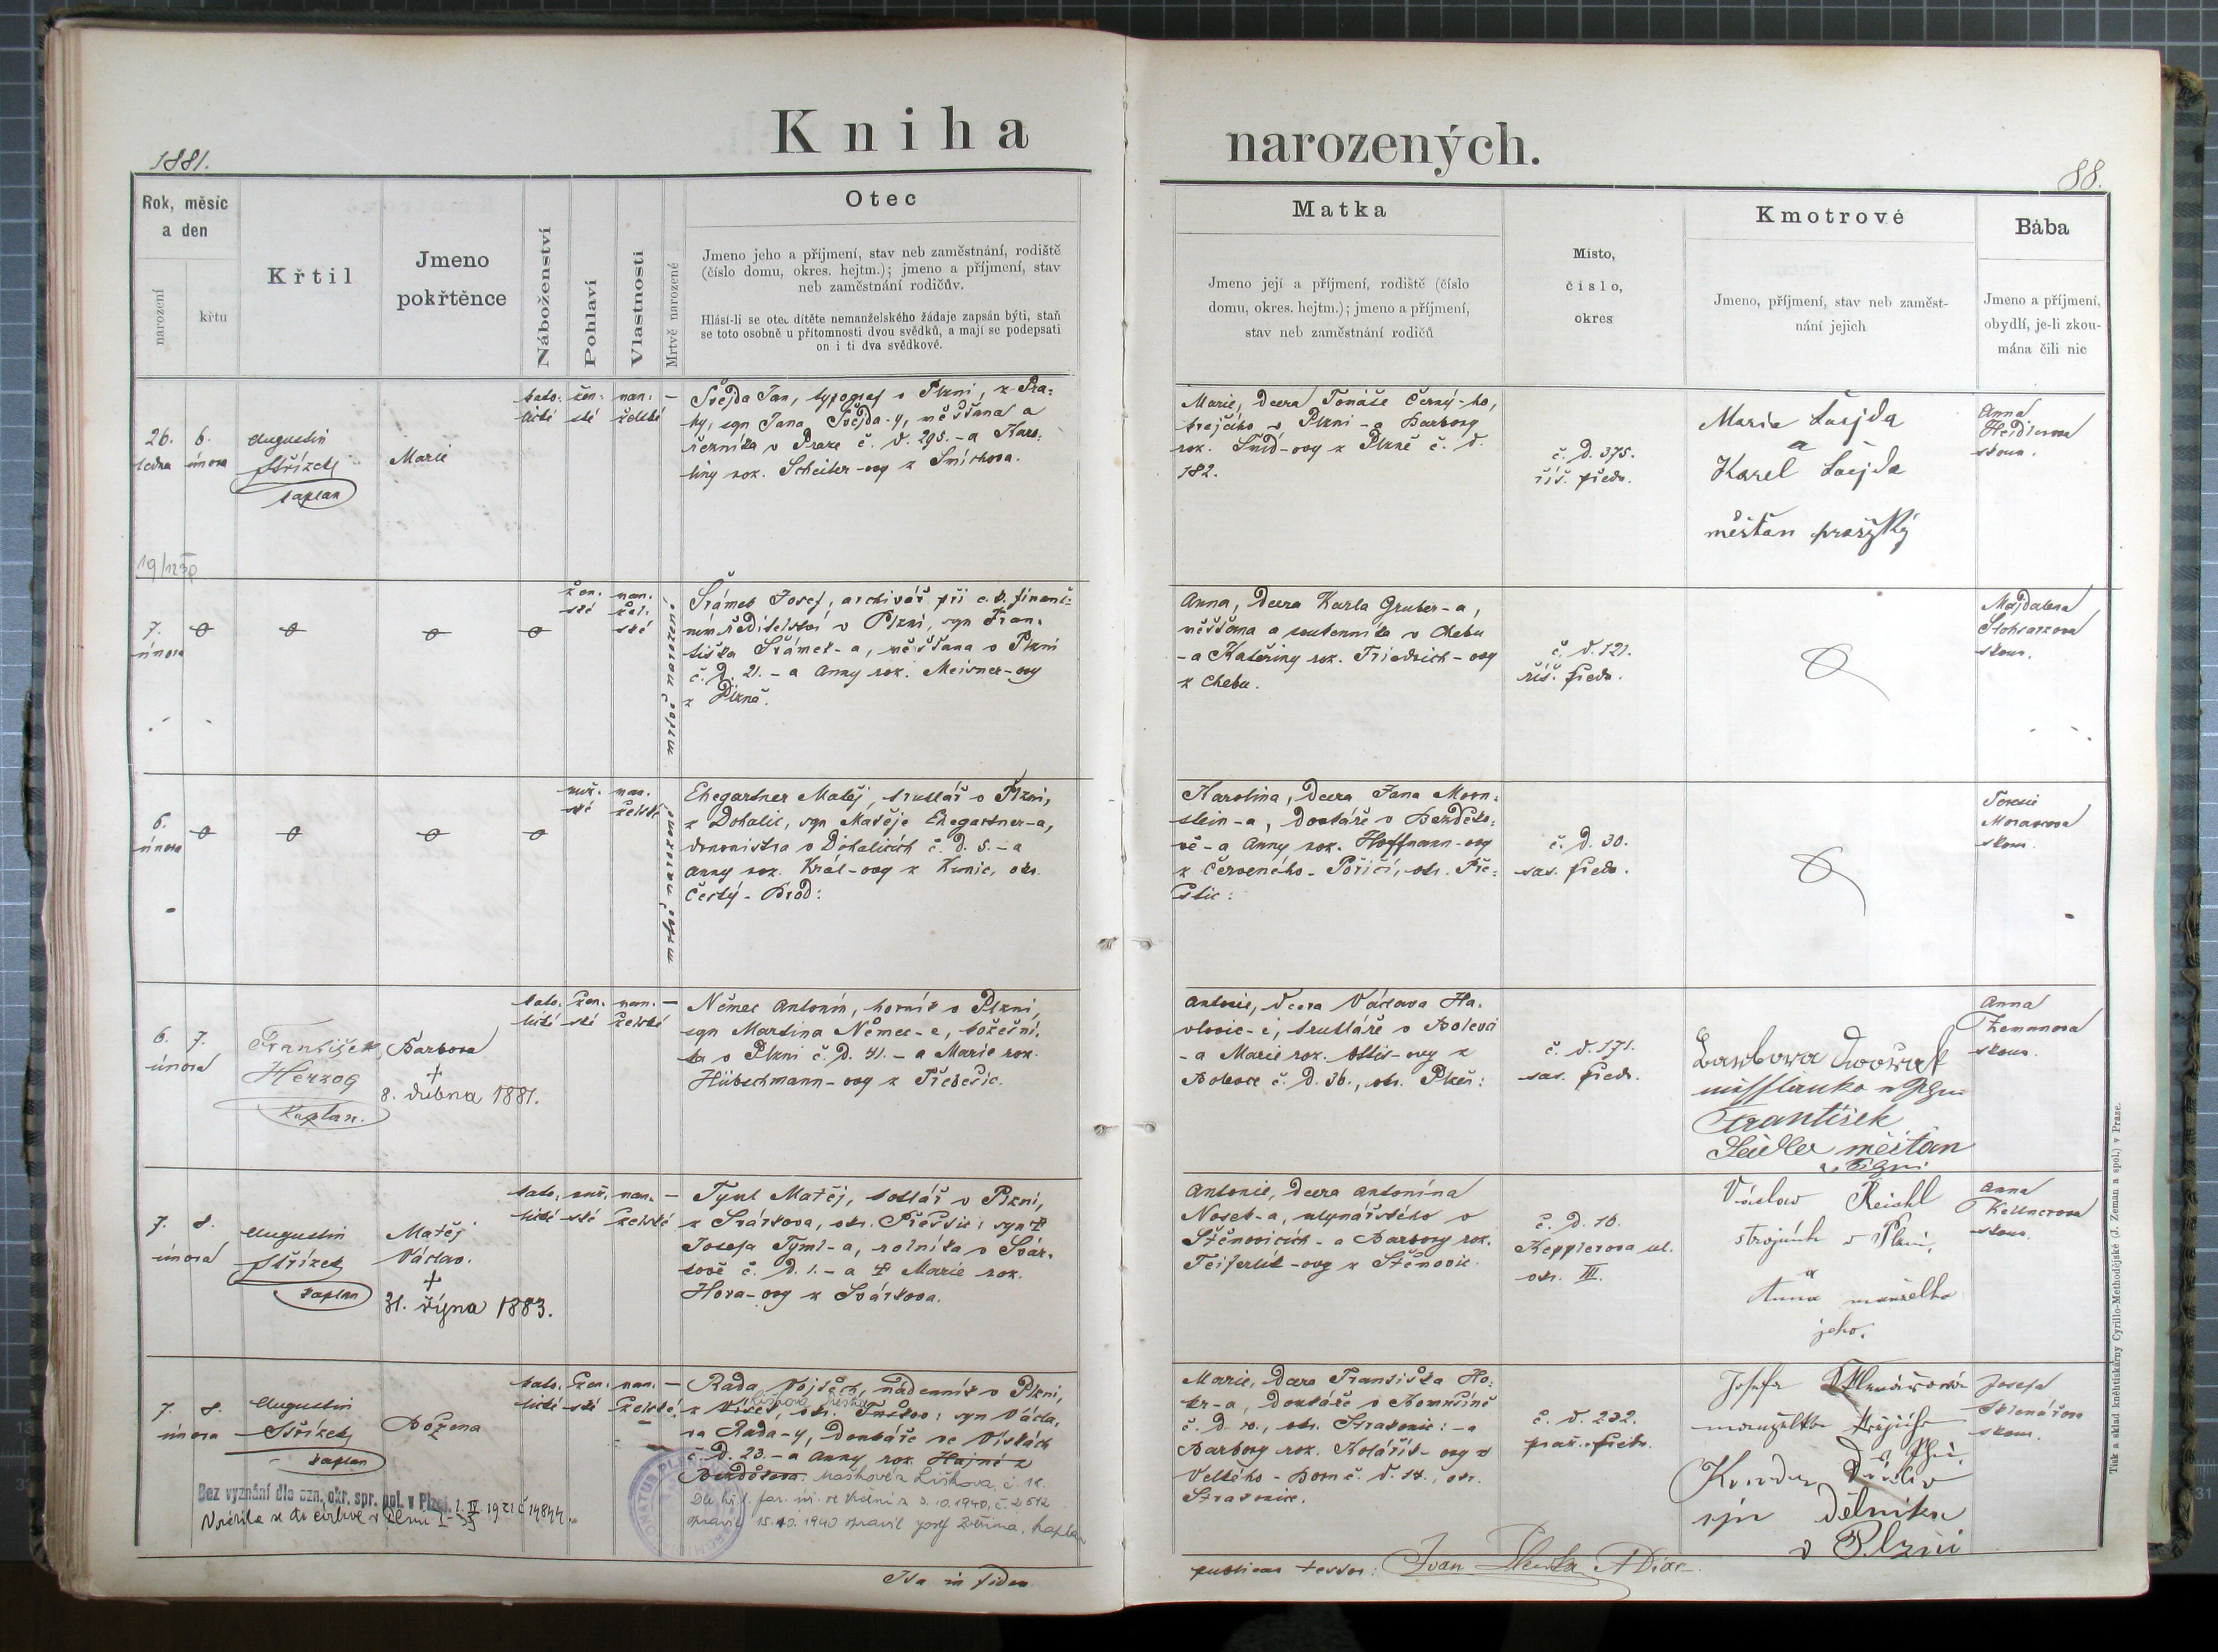 Kniha
narozených.
1881.
88.
Rok, měsíc
a den
narození
křtu
Křtil
Jmeno
pokřtěnce
Náboženství
Pohlaví
Vlastnosti
Mrtvě narozené
Otec
Jmeno jeho a příjmení, stav neb zaměstnání, rodiště
(číslo domu, okres. hejtm.); jmeno a příjmení, stav
neb zaměstnání rodičův.
Hlásí-li se otec dítěte nemanželského žádaje zapsán býti, staň
se toto osobně u přítomnosti dvou svědků, a mají se podepsati
on i ti dva svědkové.
Matka
Jmeno její a příjmení, rodiště (číslo
domu, okres. hejtm.); jmeno a příjmení,
stav neb zaměstnání rodičů
Místo,
číslo,
okres
Kmotrové
Jmeno, příjmení, stav neb zaměst-
nání jejich
Bába
Jmeno a příjmení,
obydlí, je-li zkou-
mána čili nic
26.
ledna
6.
února
Augustin
Střízek
kaplan
Marie
kato-
lické
žen-
ské
man-
želské
–
Švejda Jan, typograf v Plzni, z Pra-
hy, syn Jana Švejda-y, měšťana a
řezníka v Praze č. d. 295. - a Karo-
liny roz. Scheiter-ovy z Smíchova.
Marie, dcera Tomáše Černý-ho,
krejčího v Plzni - a Barbory
roz. Šmíd-ovy z Plzně č. d.
182.
č. d. 375.
říš. předm.
Marie
a
Karel
měšťan pražský
Anna
Heidlerova
zkoum.
19/12 30
7.
února
žen-
ské
man-
žel-
ské
mrtvě narozené
Šrámek Josef, archivář při c. k. finanč-
ním ředitelství v Plzni, syn Fran-
tiška Šrámek-a, měšťana v Plzni
č. d. 21. - a Anny roz. Meixner-ovy
z Plzně.
Anna, dcera Karla Gruber-a,
měšťana a soukenníka v Chebu
- a Kateřiny roz. Friedrich-ovy
z Chebu.
č. d. 121.
říš. předm.
Majdalena
zkoum.
6.
února
muž-
ské
man-
želské
mrtvě narozené
Ehegartner Matěj, truhlář v Plzni,
z Dohalic, syn Matěje Ehegartner-a,
ekonomistra v Dohalicích č. d. 5. - a
Anny roz. Král-ovy z Kunic, okr.
Český-Brod:
Karolina, dcera Jana Moon-
stein-a, domkáře v Bezděko-
vě - a Anny roz. Hoffmann-ovy
z Červeného-Poříčí, okr. Pře-
štic:
č. d. 30.
sas. předm.
Terezie
Moravcova
zkoum.
6.
února
7.
František
Herzog
Kaplan.
Barbora
†
8. dubna 1881.
kato-
lické
žen-
ské
man-
želské
–
Němec Antonín, horník v Plzni,
syn Martina Němec-e, kožešní-
ka v Plzni č. d. 41. - a Marie roz.
Hübschmann-ovy z Třebešic.
Antonie, dcera Václava Ha-
vlovic-e, truhláře v Bolevci
- a Marie roz. Altis-ovy z
Bolevce č. d. 36., okr. Plzeň:
č. d. 171.
sas. předm.
František
měšťan
v Plzni
Anna
Zemanova
zkoum.
7.
února
8.
Augustin
Střízek
kaplan
Matěj
Václav.
†
31. října 1883.
kato-
lické
muž-
ské
man-
želské
–
Tyml Matěj, kotlář v Plzni,
z Svárkova, okr. Přeštic: syn †
Josefa Tyml-a, rolníka v Svár-
kově č. d. 1. - a † Marie roz.
Hora-ovy z Svárkova.
Antonie, dcera Antonína
Nosek-a, mlynářského v
Štěnovicích - a Barbory roz.
Teiferlík-ovy z Štěnovic.
č. d. 16.
Kepplerova ul.
okr. III.
Václav Reichl
strojník v Plzni,
a
Anna manželka
jeho.
Anna
Kellnerova
zkoum.
7.
února
8.
Augustin
Střízek
kaplan
Božena
kato-
lické
žen-
ské
man-
želské
–
Rada Vojtěch, nádenník v Plzni,
z Vísek, okr. syn Václa-
va Rada-y, domkáře ve Vískách
č. d. 23. - a Anny roz. Hajné z
Bezděkova. Maškové z Liškova, č. 16.
3. 10. 1940, č. 2512
opravil 15. 10. 1940 opravil Josef kaplan
Marie, dcera Františka Ho-
kr-a, domkáře v
č. d. 10., okr. Strakonic: - a
Barbory roz. Kolářík-ovy z
Velkého-Boru č. d. 14., okr.
Strakonice.
č. d. 232.
praž. předm.
Josefa
manželka krejčího
v Plzni,
syn dělníka
v Plzni
Josefa
Sklenářova
zkoum.
Bez vyznání dle ozn. okr. spr. pol. v Plzni 1. IV. 1921 č. 14844.
Ita in fidem
publicam testor: Ivan
Tisk a sklad knihtiskárny Cyrillo-Methodějské (J. Zeman a spol.) v Praze.